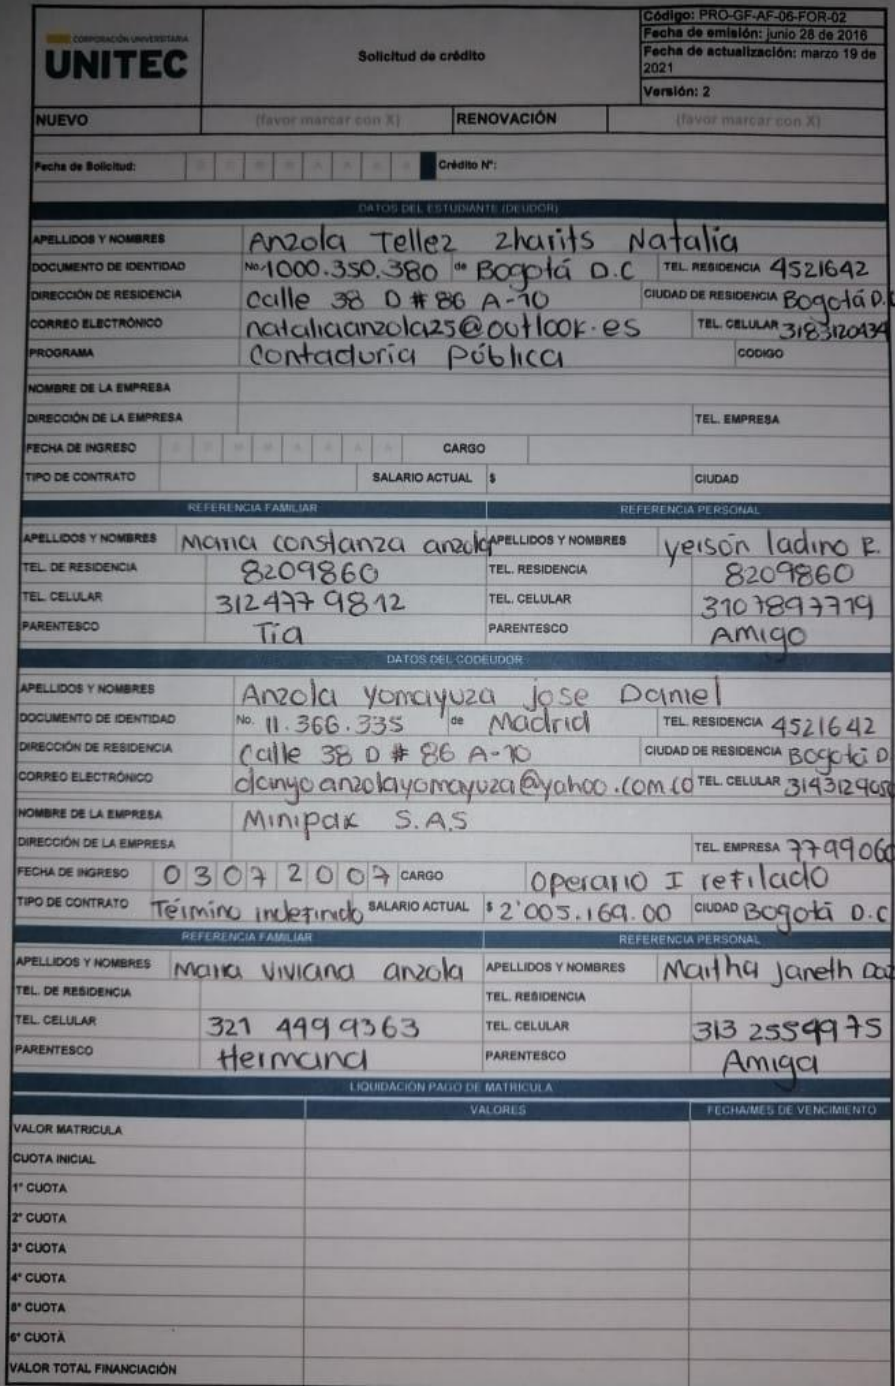 CORPORACIÓN UNIVERSITARIA
UNITEC
Solicitud de crédito
Código: PRO-GF-AF-06-FOR-02
Fecha de emisión: junio 28 de 2016
Fecha de actualización: marzo 19 de 2021
Versión: 2
NUEVO (favor marcar con X) RENOVACIÓN (favor marcar con X)
Fecha de Solicitud: Crédito N°:
DATOS DEL ESTUDIANTE (DEUDOR)
APELLIDOS Y NOMBRES Anzola Tellez Zharits Natalia
DOCUMENTO DE IDENTIDAD No. 1000.350.380 de Bogotá D.C TEL. RESIDENCIA 4521642
DIRECCIÓN DE RESIDENCIA Calle 38 D # 86 A-70 CIUDAD DE RESIDENCIA Bogotá D.C
CORREO ELECTRÓNICO nataliaanzola25@outlook.es TEL. CELULAR 3183120434
PROGRAMA Contaduría Pública CODIGO
NOMBRE DE LA EMPRESA
DIRECCIÓN DE LA EMPRESA TEL. EMPRESA
FECHA DE INGRESO CARGO
TIPO DE CONTRATO SALARIO ACTUAL $ CIUDAD
REFERENCIA FAMILIAR REFERENCIA PERSONAL
APELLIDOS Y NOMBRES Maria constanza anzola APELLIDOS Y NOMBRES yeison ladino R.
TEL. DE RESIDENCIA 8209860 TEL. RESIDENCIA 8209860
TEL. CELULAR 312 477 9812 TEL. CELULAR 3107897719
PARENTESCO Tía PARENTESCO Amigo
DATOS DEL CODEUDOR
APELLIDOS Y NOMBRES Anzola Yomayuza jose Daniel
DOCUMENTO DE IDENTIDAD No. 11.366.335 de Madrid TEL. RESIDENCIA 4521642
DIRECCIÓN DE RESIDENCIA Calle 38 D # 86 A-70 CIUDAD DE RESIDENCIA Bogotá D
CORREO ELECTRÓNICO danyoanzolayomayuza@yahoo.com.co TEL. CELULAR 3143129050
NOMBRE DE LA EMPRESA Minipak S.A.S
DIRECCIÓN DE LA EMPRESA TEL. EMPRESA 7799060
FECHA DE INGRESO 03072007 CARGO Operario I refilado
TIPO DE CONTRATO Término indefinido SALARIO ACTUAL $ 2'005.169.00 CIUDAD Bogotá D.C
REFERENCIA FAMILIAR REFERENCIA PERSONAL
APELLIDOS Y NOMBRES Maria Viviana anzola APELLIDOS Y NOMBRES Martha Janeth
TEL. DE RESIDENCIA TEL. RESIDENCIA
TEL. CELULAR 321 449 9363 TEL. CELULAR 313 2559975
PARENTESCO Hermana PARENTESCO Amiga
LIQUIDACIÓN PAGO DE MATRICULA
VALORES FECHA/MES DE VENCIMIENTO
VALOR MATRICULA
CUOTA INICIAL
1° CUOTA
2° CUOTA
3° CUOTA
4° CUOTA
8° CUOTA
6° CUOTA
VALOR TOTAL FINANCIACIÓN